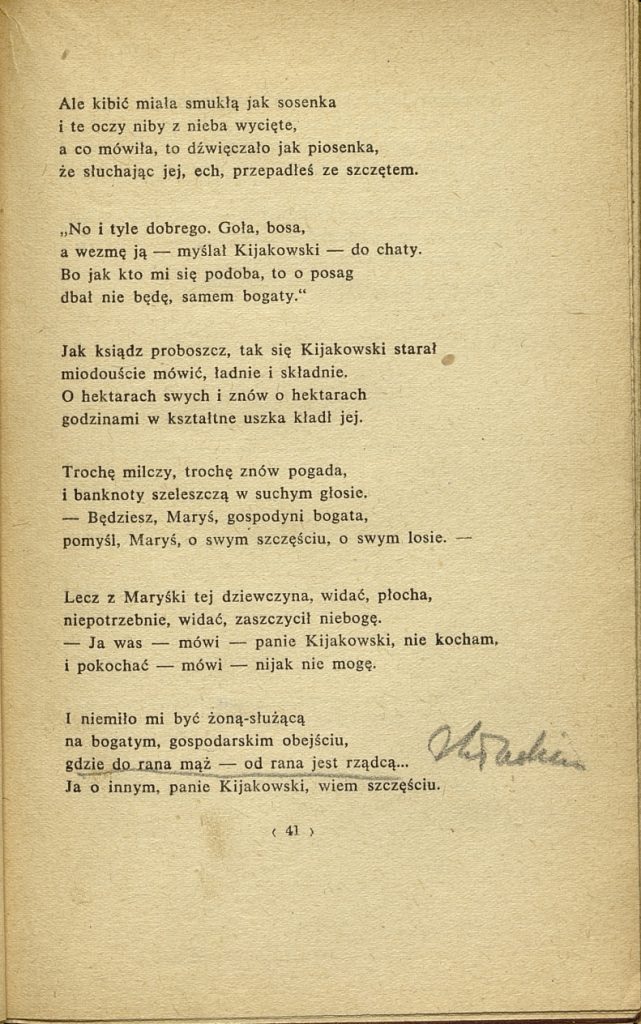 Ale kibić miała smukłą jak sosenka
i te oczy niby z nieba wycięte,
a co mówiła, to dźwięczało jak piosenka,
że słuchając jej, ech, przepadłeś ze szczętem.
„No i tyle dobrego. Goła, bosa,
a wezmę ją — myślał Kijakowski — do chaty.
Bo jak kto mi się podoba, to o posag
dbał nie będę, samem bogaty.“
Jak ksiądz proboszcz, tak się Kijakowski starał
miodouście mówić, ładnie i składnie.
O hektarach swych i znów o hektarach
godzinami w kształtne uszka kładł jej.
Trochę milczy, trochę znów pogada,
i banknoty szeleszczą w suchym głosie.
— Będziesz, Maryś, gospodyni bogata,
pomyśl, Maryś, o swym szczęściu, o swym losie. —
Lecz z Maryśki tej dziewczyna, widać, płocha,
niepotrzebnie, widać, zaszczycił niebogę.
— Ja was — mówi — panie Kijakowski, nie kocham,
i pokochać — mówi — nijak nie mogę.
I niemiło mi być żoną-służącą
na bogatym, gospodarskim obejściu,
gdzie do rana mąż — od rana jest rządcą...
Ja o innym, panie Kijakowski, wiem szczęściu.
‹ 41 ›